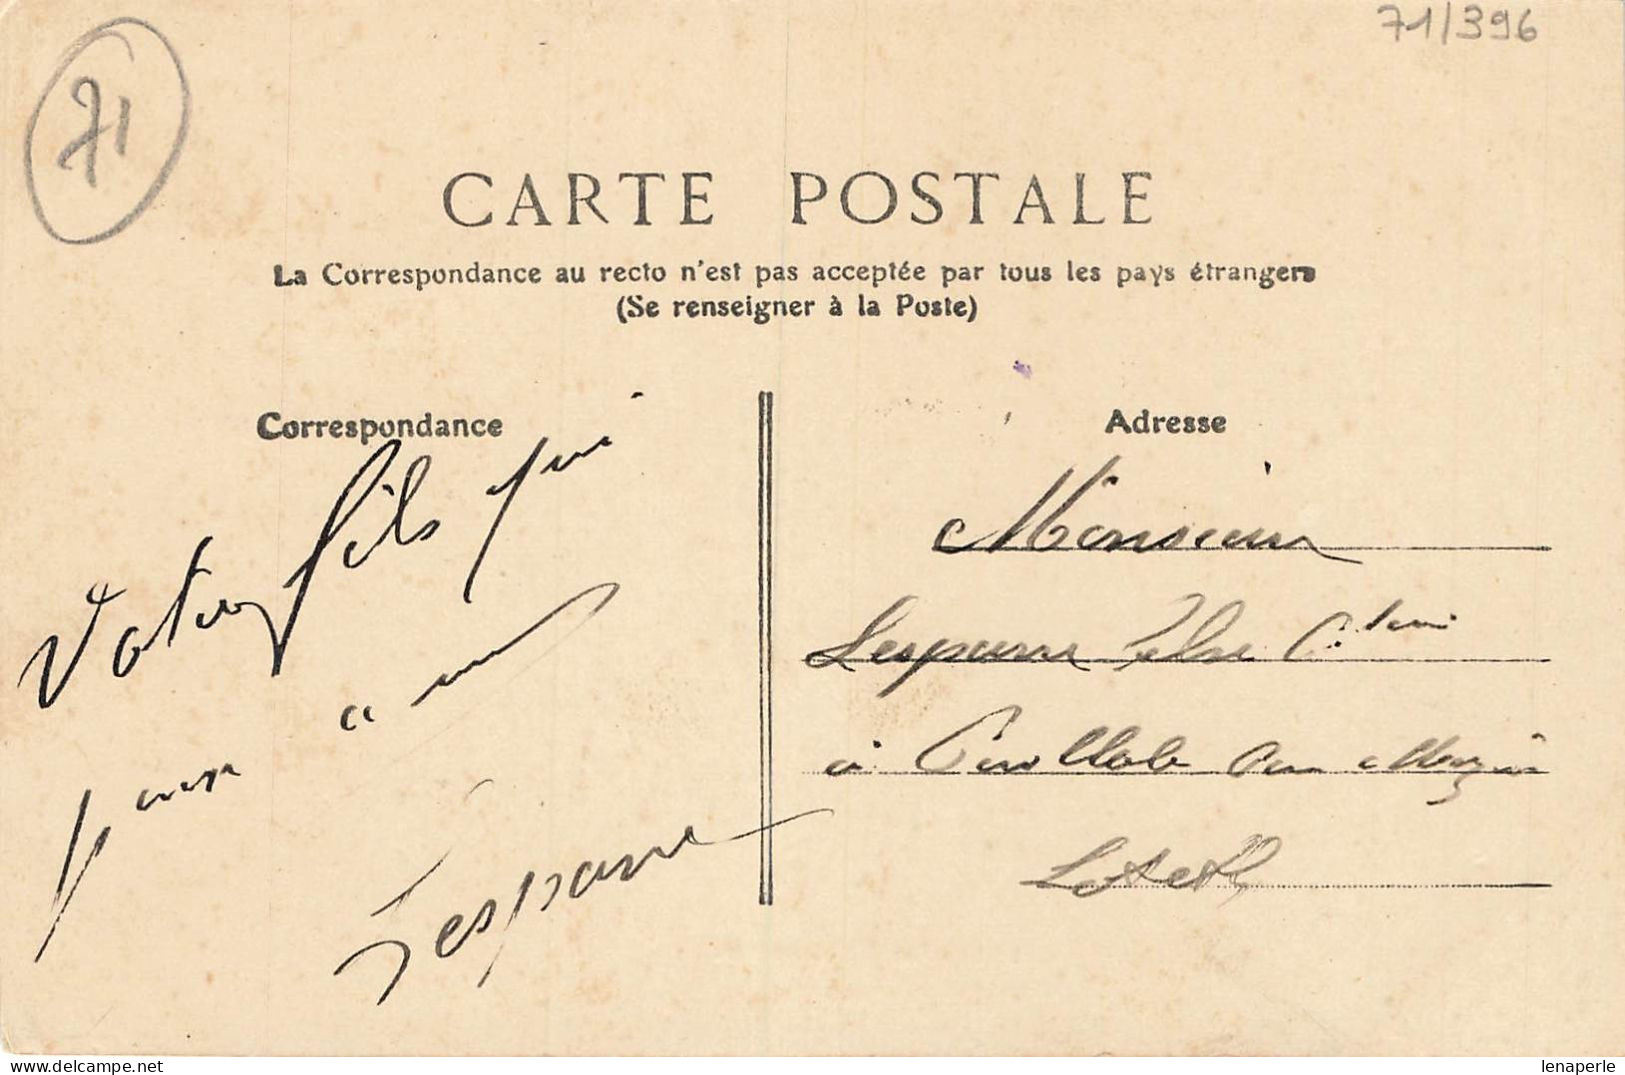 71/396
71
CARTE POSTALE
La Correspondance au recto n'est pas acceptée par tous les pays étrangers
(Se renseigner à la Poste)
Correspondance
Votre fils qui
pense a vous
Lesparre
Adresse
Monsieur
Lesparre
à
lenaperle